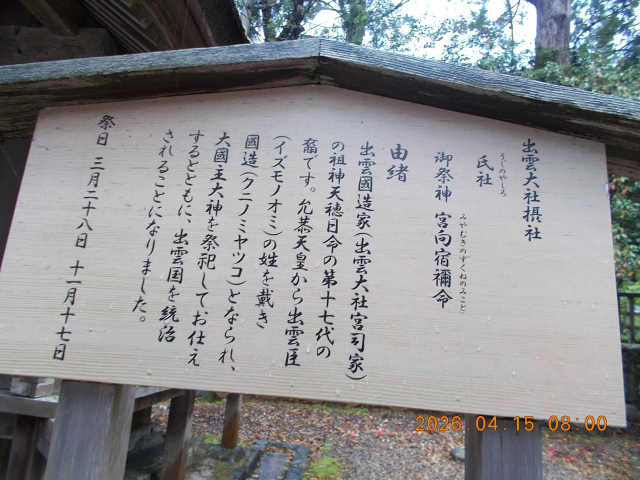 出雲大社摂社
氏社
うじのやしろ
御祭神 宮向宿禰命
みやむきのすくねのみこと
由緒
出雲國造家(出雲大社宮司家)
の祖神天穂日命の第十七代の
裔です。允恭天皇から出雲臣
(イズモノオミ)の姓を戴き
國造(クニノミヤツコ)となられ、
大國主大神を祭祀してお仕え
するとともに、出雲国を統治
されることになりました。
祭日 三月二十八日 十一月十七日
2026.04.15 08:00